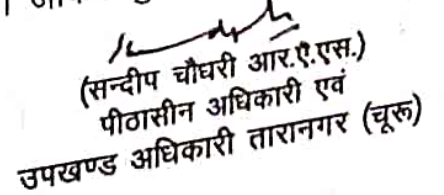 (सन्दीप चौधरी आर.ऐ.एस.)
पीठासीन अधिकारी एवं
उपखण्ड अधिकारी तारानगर (चूरू)